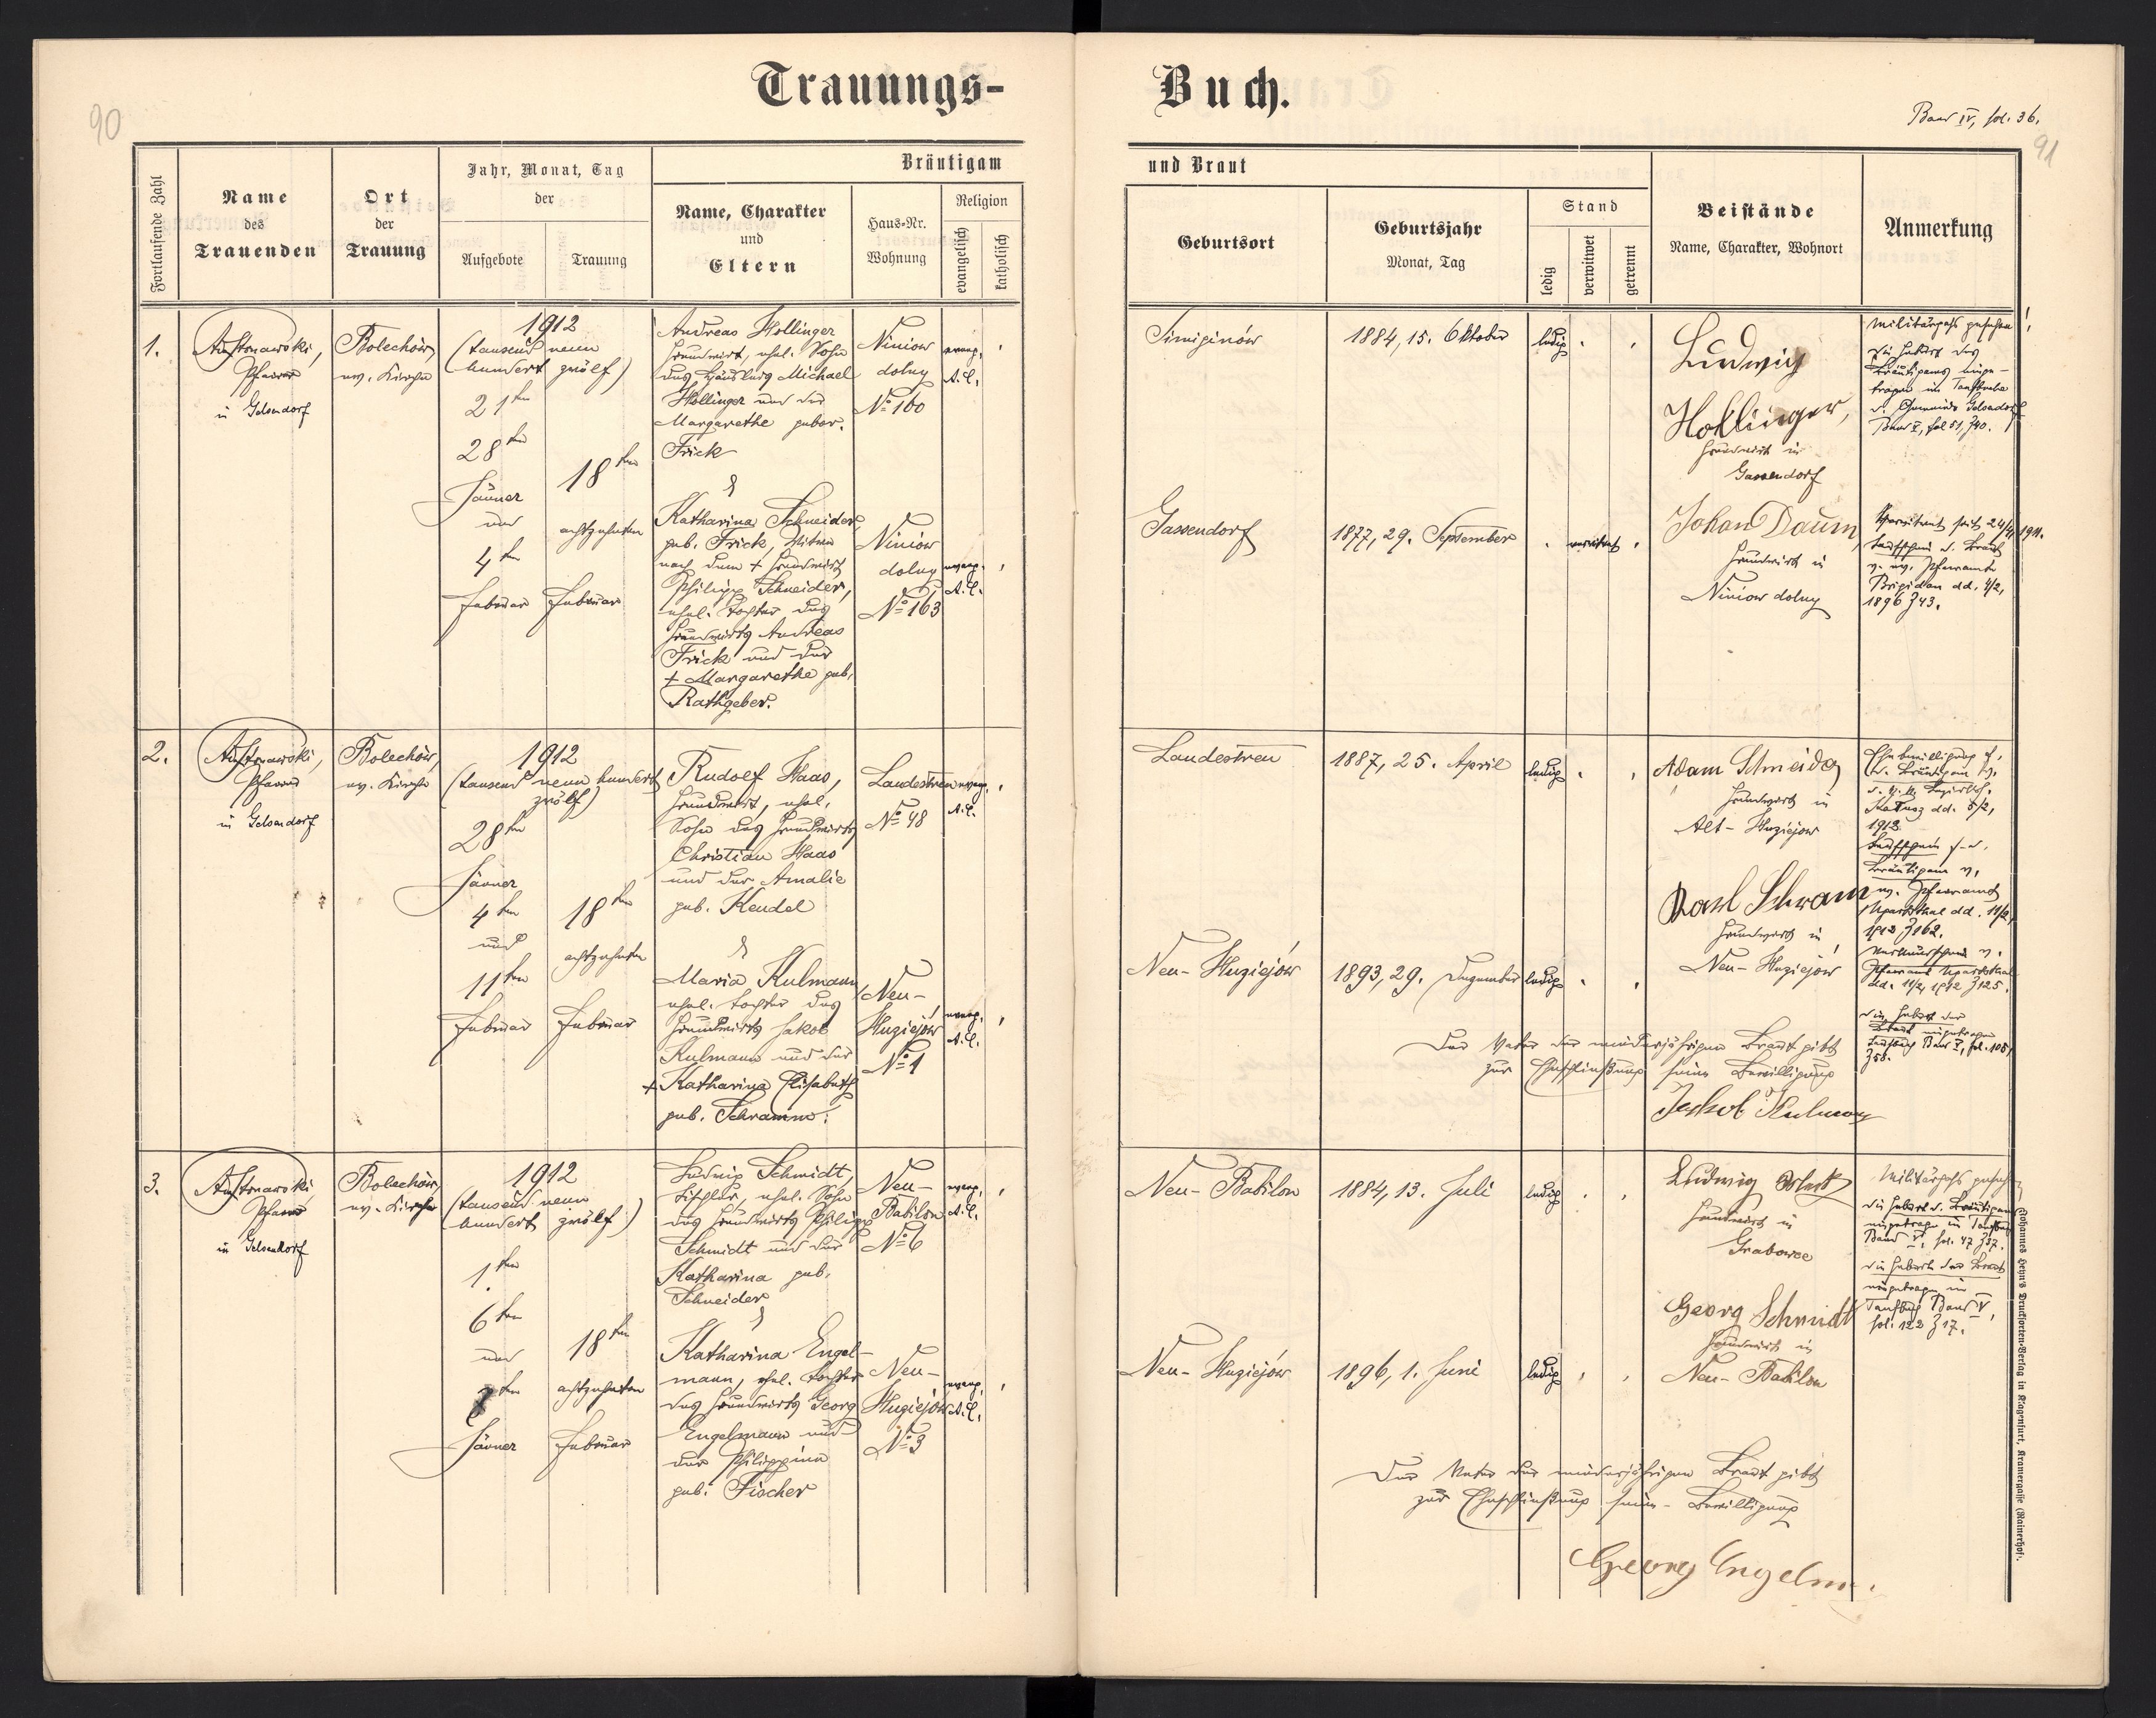 Trauungs-
Buch.
90
Band IV, fol. 36.
91
Fortlaufende Zahl
Name
des
Trauenden
Ort
der
Trauung
Jahr, Monat, Tag
der
Aufgebote
Trauung
Bräutigam
Name, Charakter
und
Eltern
Haus-Nr.
Wohnung
Religion
evangelisch
katholisch
und Braut
Geburtsort
Geburtsjahr
Monat, Tag
Stand
ledig
verwitwet
getrennt
Beistände
Name, Charakter, Wohnort
Anmerkung
1.
Pfarrer
in Gelsendorf
Bolechów
ev. Kirche
1912
(tausend neun
hundert zwölf)
21ten
28ten
Jänner
und
4ten
Februar
18ten
achtzehnten
Februar
Andreas Hollinger
Grundwirt, ehel. Sohn
des Häuslers Michael
Hollinger und der
Margarethe gebor.
Frick
&
Katharina Schneider
geb. Frick, Witwe
nach dem + Grundwirt
Philipp Schneider,
ehel. Tochter des
Grundwirts Andreas
Frick und der
+ Margarethe geb.
Rathgeber.
Niniow
dolny
No 160
evang.
A.C.
Niniow
dolny
No 163
evang.
A.C.
Simiginów
1884, 15. Oktober
ledig
Gassendorf
1877, 29. September
verwitwet
Ludwig
Hollinger,
Grundwirt in
Gassendorf
Johan Daum,
Grundwirt in
Niniow dolny
Militärpass gesehen!
Die Geburt des
Bräutigams einge-
tragen im Taufbuche
d. Gemeinde Gelsendorf
Band V, fol 51, Z 40.
Verwitwet seit 24/4 1911.
Taufschein d. Braut
v. ev. Pfarramte
Brigidau dd. 4/2,
1896 Z 43.
2.
Pfarrer
in Gelsendorf
Bolechów
ev. Kirche
1912
(tausend neun hundert
zwölf)
28ten
Jänner
4ten
und
11ten
Februar
18ten
achtzehnten
Februar
Rudolf Haas,
Grundwirt, ehel.
Sohn des Grundwirts
Christian Haas
und der Amalie
geb. Kendel
&
Maria Kulmann,
ehel. Tochter des
Grundwirts Jakob
Kulmann und der
+ Katharina Elisabeth
geb. Schramm.
Landestreu
No 48
evang.
A.C.
Neu-
Huziejów
No 1
evang.
A.C.
Landestreu
1887, 25. April
ledig
Neu-Huziejów
1893, 29. Dezember
ledig
Der Vater der minderjährigen Braut gibt
zur Eheschließung seine Bewilligung
Jakob Kulmann
Adam Schneider
Grundwirt in
Alt-Huziejow
Karl Schram
Grundwirt in
Neu-Huziejów
Ehebewilligung f.
d. Bräutigam v.
d. k. k. Bezirksh.
Kałusz dd. 8/2,
1912
Taufschein f. d.
Bräutigam v.
ev. Pfarramt
Ugartsthal dd. 11/2,
1912 Z 162.
Verkündschein v.
Pfarramt Ugartsthal
dd. 11/2 1912 Z 125.
Die Geburt der
Braut eingetragen
Taufbuch Band V, fol. 108,
Z 58.
3.
Pfarrer
in Gelsendorf
Bolechów
ev. Kirche
1912
(tausend neun
hundert zwölf)
1ten
6ten
und
7ten
Jänner
18ten
achtzehnten
Februar
Ludwig Schmidt,
Tischler, ehel. Sohn
des Grundwirts Philipp
Schmidt und der
Katharina geb.
Schneider
&
Katharina Engel-
mann, ehel. Tochter
des Grundwirts Georg
Engelmann und
der Philippine
geb. Fischer
Neu-
Babilon
No 6
evang.
A.C.
Neu-
Huziejów
No 3
evang.
A.C.
Neu-Babilon
1884, 13. Juli
ledig
Neu-Huziejów
1896, 1. Juni
ledig
Der Vater der minderjährigen Braut gibt
zur Eheschließung seine Bewilligung
Georg Engelm.
Ludwig
Grundwirt in
Grabowce
Georg Schmidt
Grundwirt in
Neu-Babilon
Militärpass gesehen,
Die Geburt d. Bräutigams
eingetragen im Taufbuch
Band V, fol. 47 Z 37.
Die Geburt der Braut
eingetragen im
Taufbuch Band V,
fol. 122 Z 17.
Johannes Heyn's Drucksorten-Verlag in Klagenfurt, Kramergasse (Rainerhof).